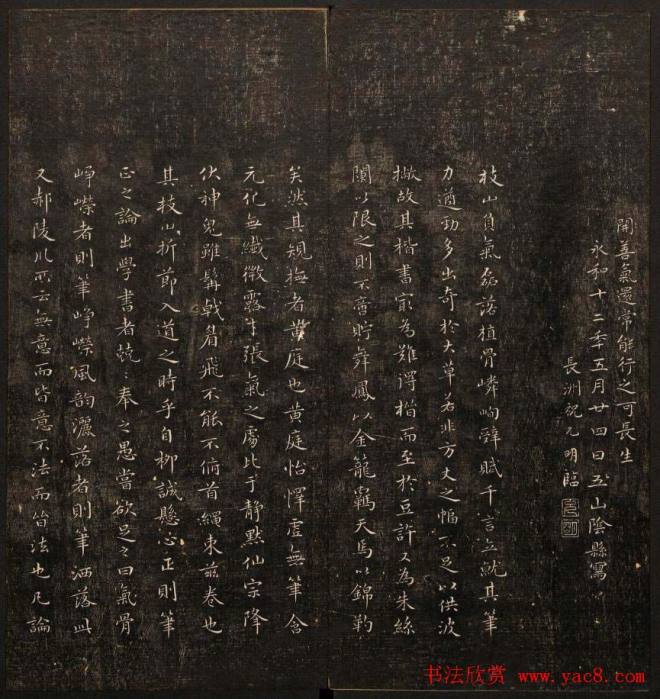 開善氣還常能行之可長生
永和十二年五月廿四日五山陰縣寫
長洲祝允明臨
枝山負氣磊落植骨嶙峋辭賦千言立就其筆
力遒勁多出奇於大草若非方丈之幅不足以供波
撇故其楷書寂為難得楷而至於豆許又為朱絲
闌以限之則不啻貯舞鳳以金籠羈天馬以錦勒
矣然其規撫者黃庭也黃庭怡懌虛無筆含
元化無纖微露才張氣之處比于靜默仙宗降
伏神鬼雖髯戟眉飛不能不俯首繩束茲卷也
其枝山折節入道之時乎自柳誠懸心正則筆
正之論出學書者兢奉之愚嘗欲足之曰氣骨
崢嶸者則筆崢嶸風韵灑落者則筆洒落此
又郝陵川所云無意而皆意不法而皆法也凡論
书法欣赏 www.yac8.com